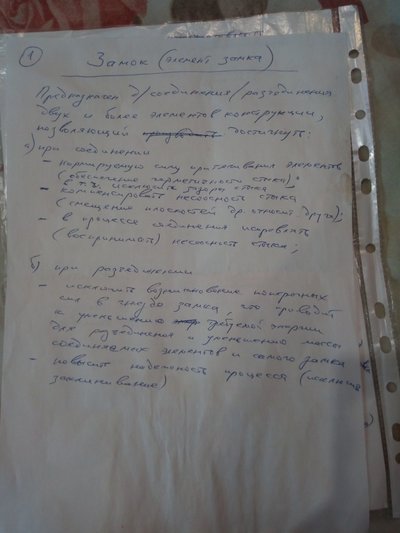 1
Замок (элемент замка)
Предназначен д/соединения/разъединения
двух и более элементов конструкции,
позволяющий достичнуть:
а) при соединении
- нормируемую силу притягивания элементов
(обеспечение герметичности стыка)
в т.ч. исключить зазоры стыка
- компенсировать несоосность стыка
(смещение плоскостей др. относит. друга);
- в процессе соединения исправлять
(воспринимать) несоосность стыка;
б) при разъединении
- исключить возникновение поперечных
сил в гнезда замка, что приводит
к уменьшению требуемой энергии
для разъединения и уменьшению массы
соединяемых элементов и самого замка
- повысит надежность процесса (исключить
заклинивание)